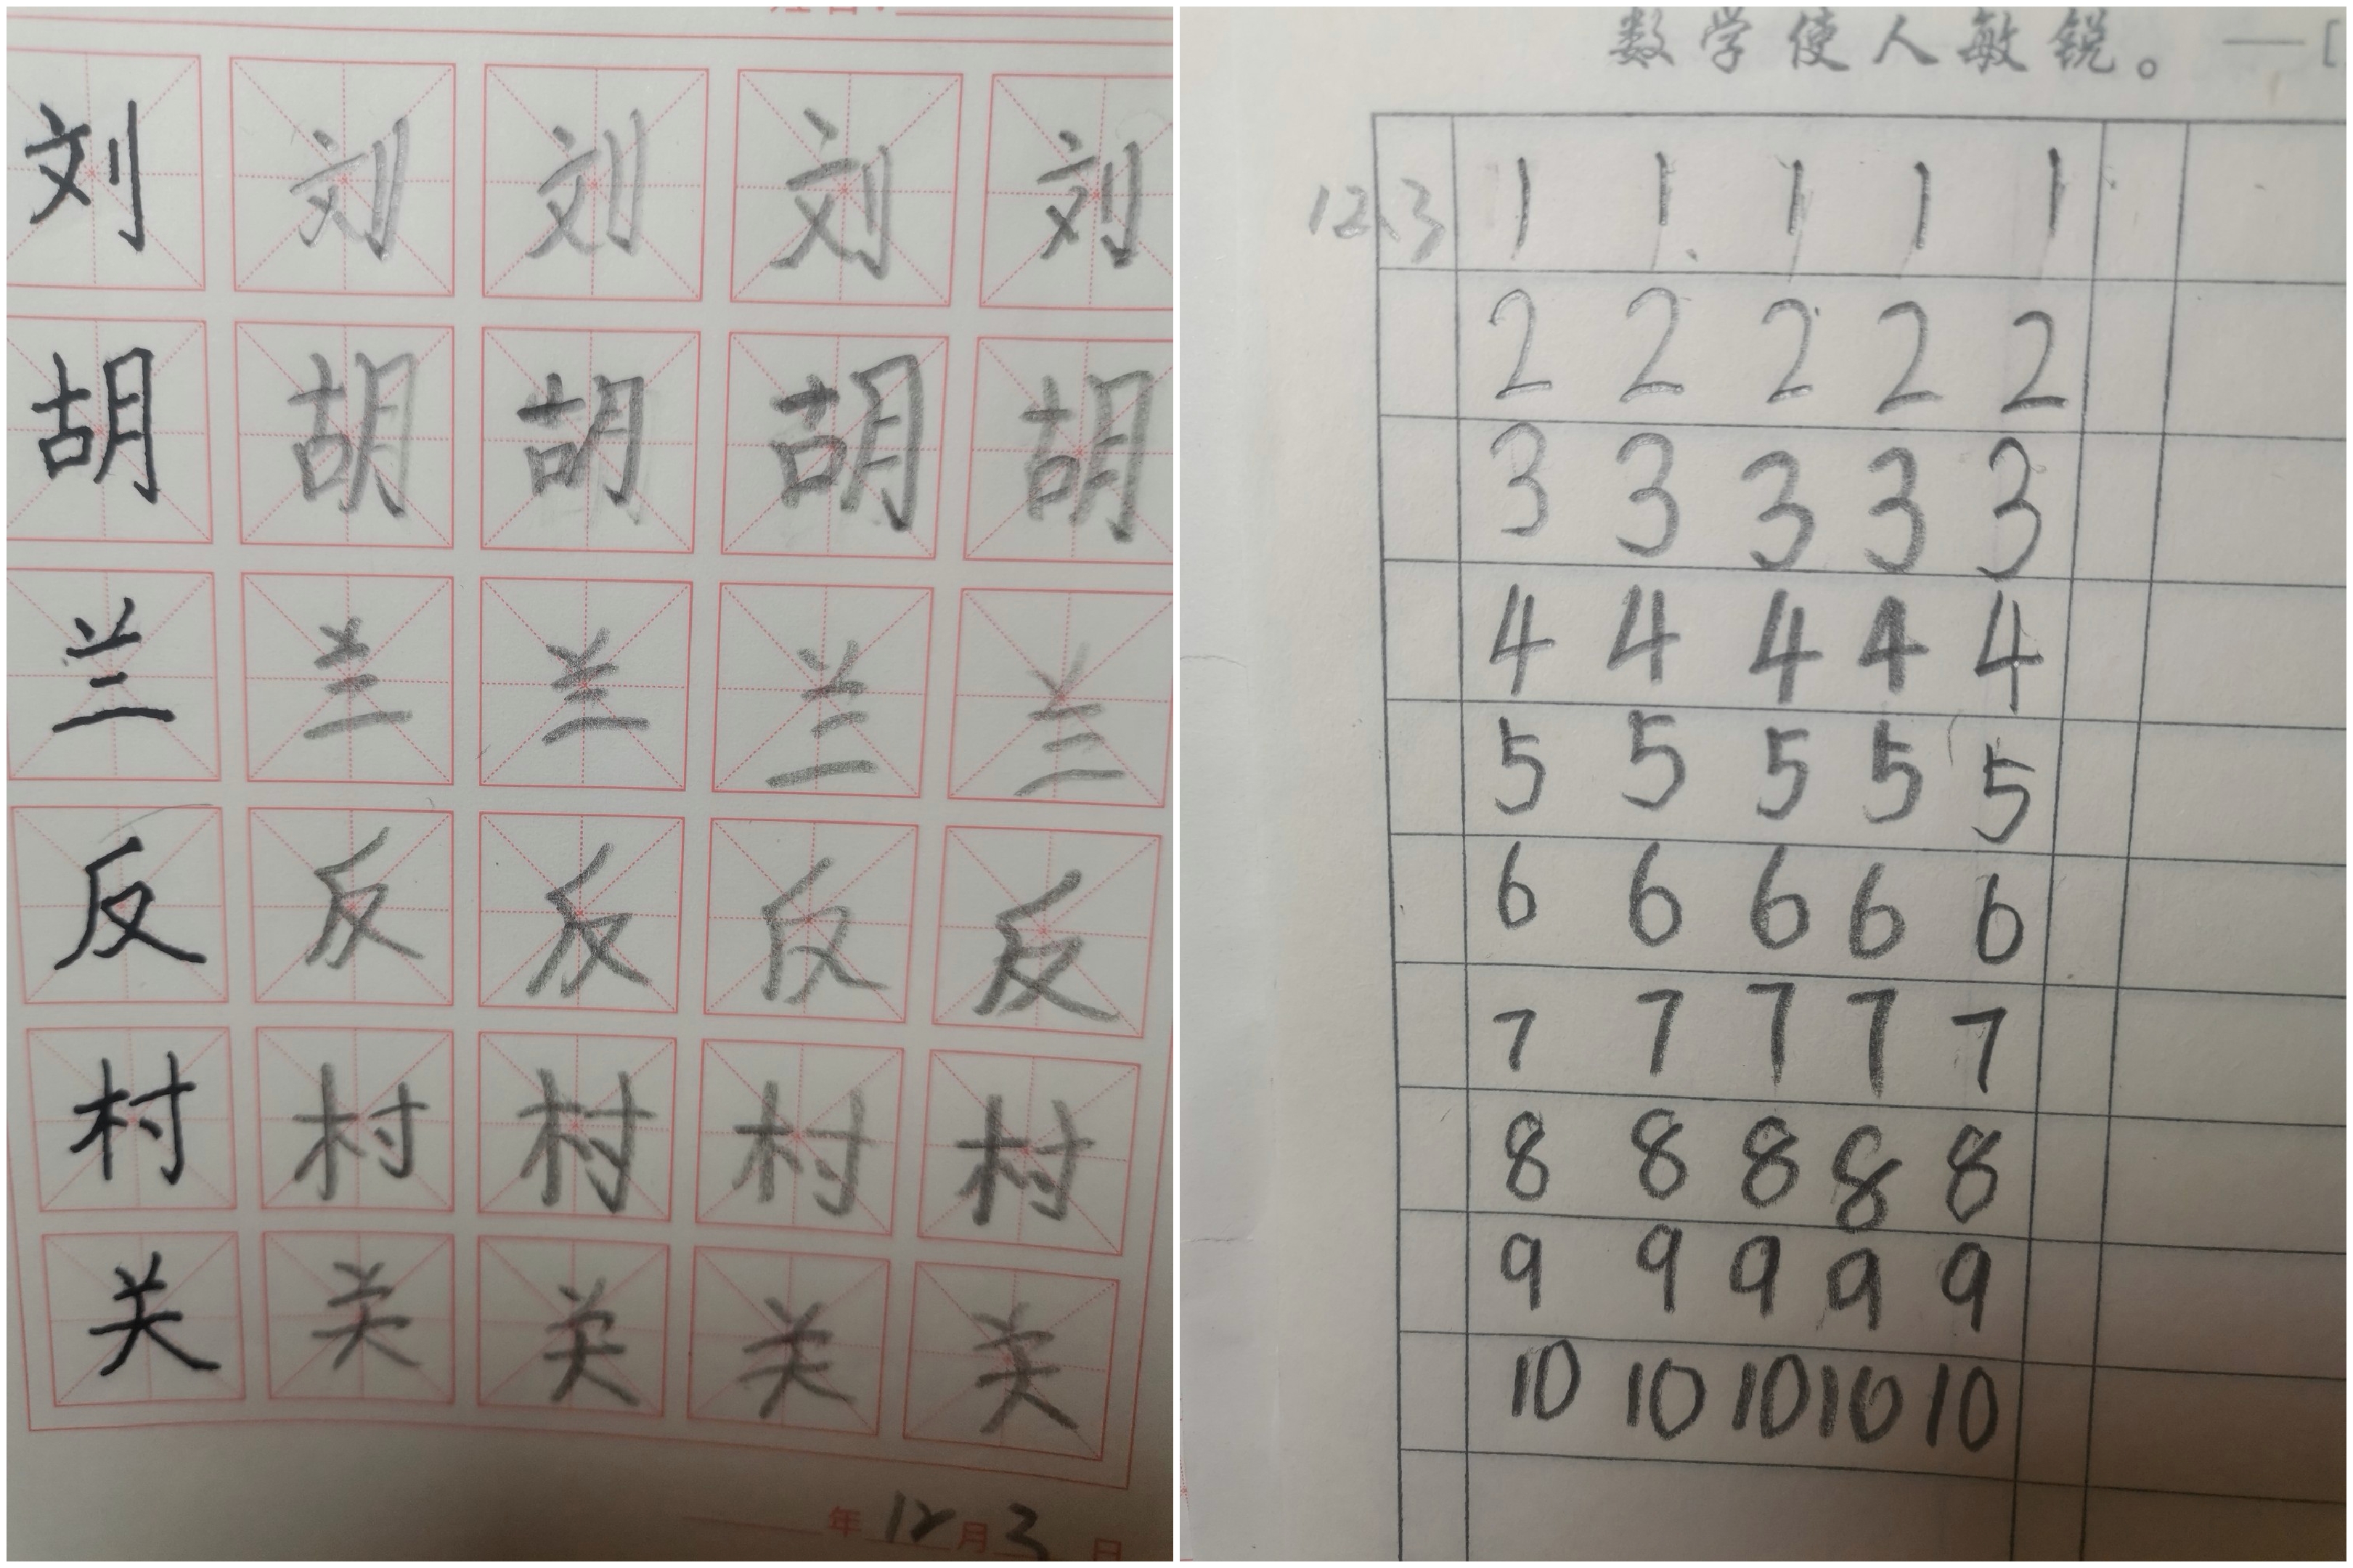 刘 刘 刘 刘 刘
胡 胡 胡 胡 胡
兰 兰 兰 兰 兰
反 反 反 反 反
村 村 村 村 村
关 关 关 关 关
年 12 月 3 日
数学使人敏锐。 —
12.3 1 1 1 1 1
2 2 2 2 2
3 3 3 3 3
4 4 4 4 4
5 5 5 5 5
6 6 6 6 6
7 7 7 7 7
8 8 8 8 8
9 9 9 9 9
10 10 10 10 10